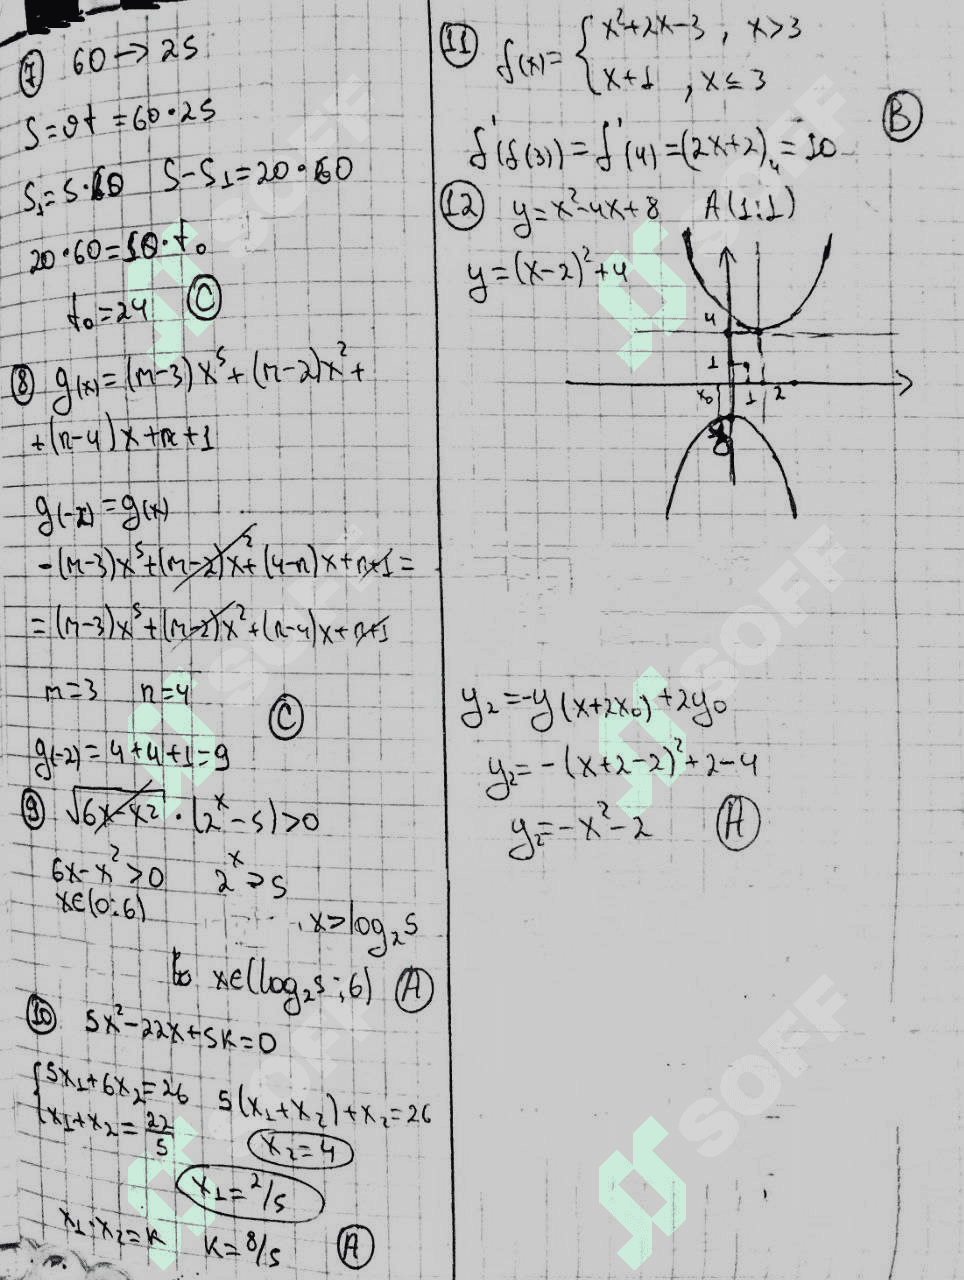 7 60 → 25
S=vt = 60·25
S₁=5·60 S-S₁=20·60
20·60=10·t₀
t₀=24 C
8 g(x)=(m-3)x⁵+(m-2)x²+
+(n-4)x+n+1
g(-x)=g(x)
-(m-3)x⁵+(m-2)x²+(4-n)x+n+1=
=(m-3)x⁵+(m-2)x²+(n-4)x+n+1
m=3 n=4 C
g(-2)=4+4+1=9
9 √(6x-x²)·(2ˣ-5)>0
6x-x²>0 2ˣ>5
x∈(0;6)
x>log₂5
x∈(log₂5;6) A
10 5x²-22x+5k=0
5x₁+6x₂=26 5(x₁+x₂)+x₂=26
x₁+x₂=22/5
x₂=4
x₁=2/5
x₁·x₂=k k=8/5 A
11 f(x)= { x²+2x-3, x>3
x+1, x≤3
B
f'(f(3))=f'(4)=(2x+2)₄=10
12 y=x²-4x+8 A(1;1)
y=(x-2)²+4
4
1
x₀ 1 2
y₂=-y(x+2x₀)+2y₀
y₂=-(x+2-2)²+2-4
y₂=-x²-2 A
SOFF
SOFF
SOFF
SOFF
SOFF
SOFF